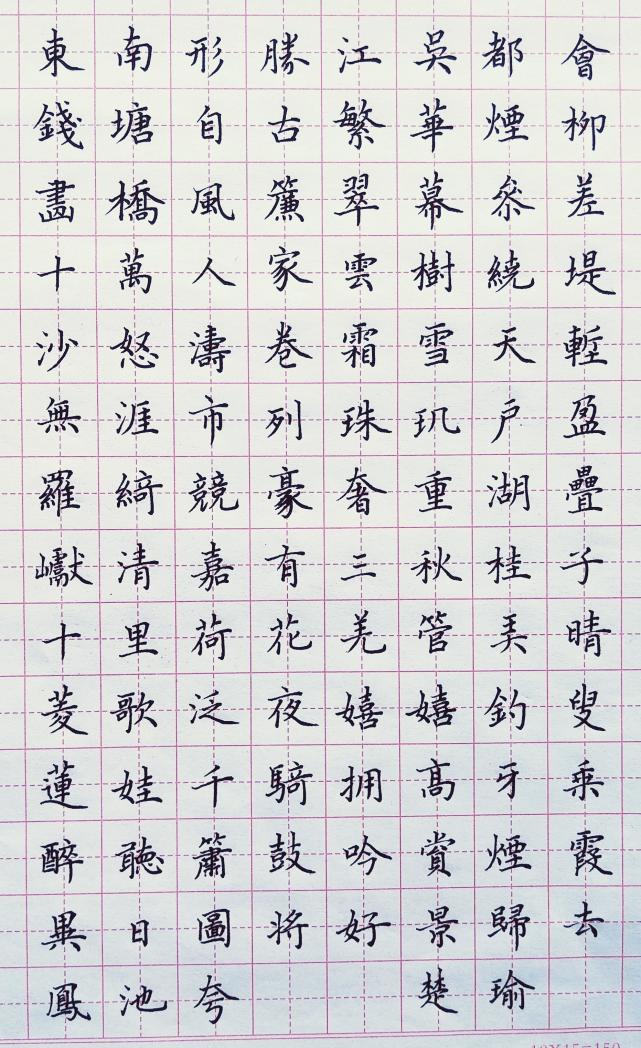 東南形勝江吳都會
錢塘自古繁華煙柳
畫橋風簾翠幕參差
十萬人家雲樹繞堤
沙怒濤卷霜雪天塹
無涯市列珠玑户盈
羅綺競豪奢重湖疊
巘清嘉有三秋桂子
十里荷花羌管弄晴
菱歌泛夜嬉嬉釣叟
蓮娃千騎拥高牙乘
醉聽簫鼓吟賞煙霞
異日圖將好景歸去
鳳池夸 楚瑜